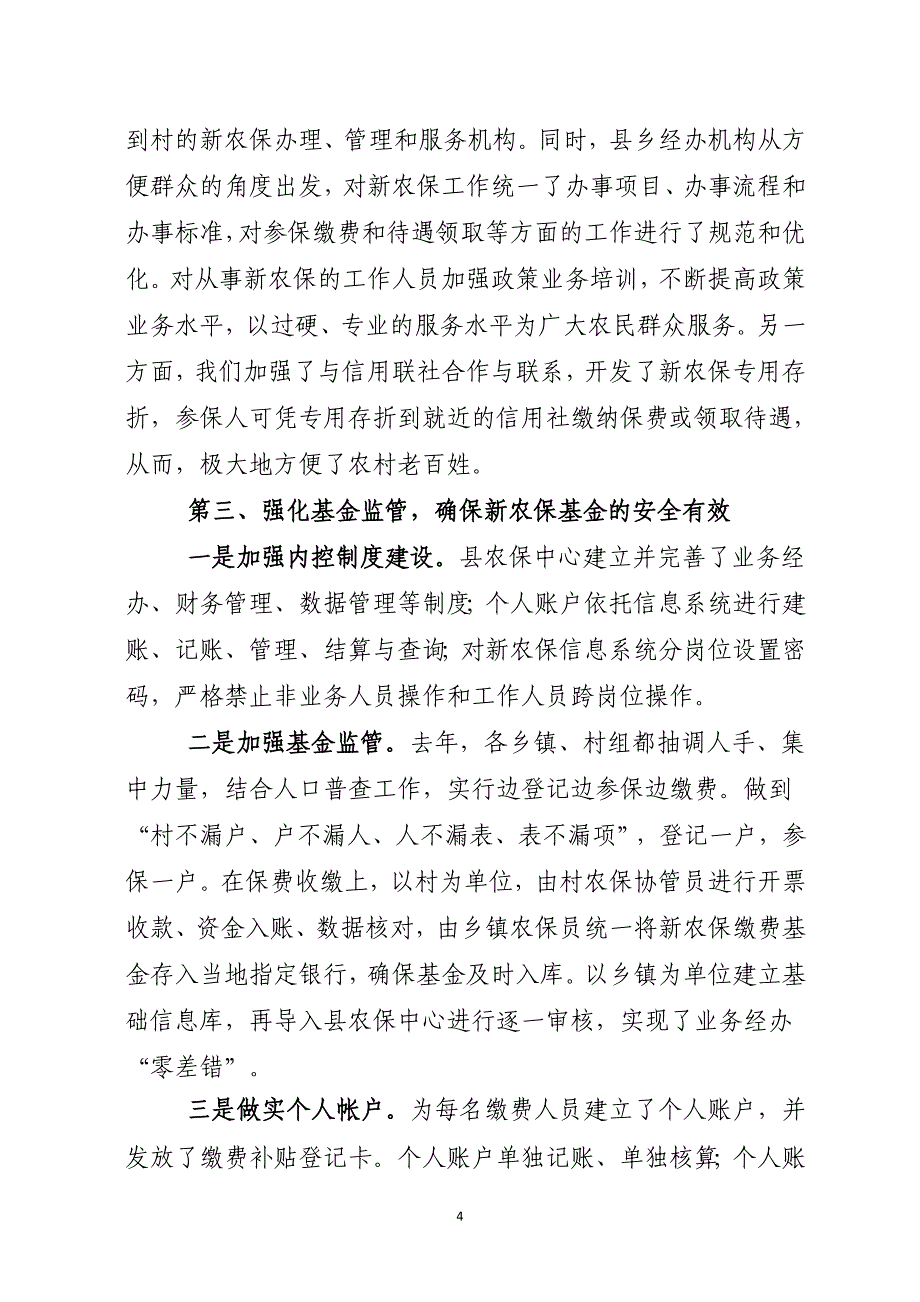 到村的新农保办理、管理和服务机构。同时，县乡经办机构从方
便群众的角度出发，对新农保工作统一了办事项目、办事流程和
办事标准，对参保缴费和待遇领取等方面的工作进行了规范和优
化。对从事新农保的工作人员加强政策业务培训，不断提高政策
业务水平，以过硬、专业的服务水平为广大农民群众服务。另一
方面，我们加强了与信用联社合作与联系，开发了新农保专用存
折，参保人可凭专用存折到就近的信用社缴纳保费或领取待遇，
从而，极大地方便了农村老百姓。
第三、强化基金监管，确保新农保基金的安全有效
一是加强内控制度建设。县农保中心建立并完善了业务经
办、财务管理、数据管理等制度；个人账户依托信息系统进行建
账、记账、管理、结算与查询；对新农保信息系统分岗位设置密
码，严格禁止非业务人员操作和工作人员跨岗位操作。
二是加强基金监管。去年，各乡镇、村组都抽调人手、集
中力量，结合人口普查工作，实行边登记边参保边缴费。做到
“村不漏户、户不漏人、人不漏表、表不漏项”，登记一户，参
保一户。在保费收缴上，以村为单位，由村农保协管员进行开票
收款、资金入账、数据核对，由乡镇农保员统一将新农保缴费基
金存入当地指定银行，确保基金及时入库。以乡镇为单位建立基
础信息库，再导入县农保中心进行逐一审核，实现了业务经办
“零差错”。
三是做实个人帐户。为每名缴费人员建立了个人账户，并
发放了缴费补贴登记卡。个人账户单独记账、单独核算；个人账
4